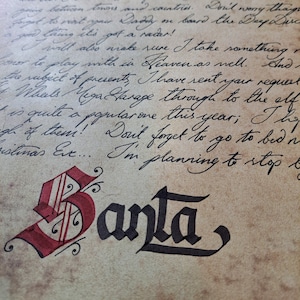 towns and counties. Don't worry things
to wait your Daddy on board the
a good thing it's got a radar!
I will also make sure I take something
to play with in Heaven as well. And
the subject of presents, I have sent your request
Whale Mega Garage through to the elf
It is quite a popular one this year; I
of them! Don't forget to go to bed
Eve... I'm planning to stop
Santa